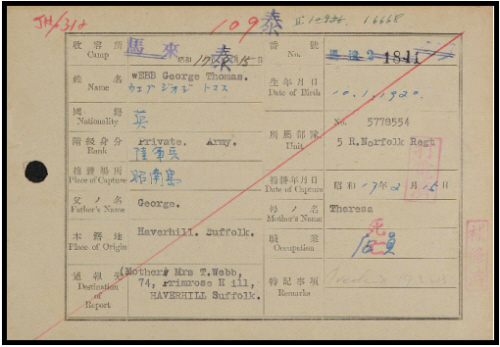 JM/312 109 泰 16668
收容所 Camp 馬來 泰 昭和 17年 月15日
番號 No. 1841
姓名 Name WEBB George Thomas.
生年月日 Date of Birth 10.1.1920.
國籍 Nationality 英
No. 5778554
階級身分 Rank Private. Army.
所屬部隊 Unit 5 R.Norfolk Regt
捕獲場所 Place of Capture 昭南島
捕獲年月日 Date of Capture 昭和 17年2月15日
父ノ名 Father's Name George.
母ノ名 Mother's Name Theresa
本籍地 Place of Origin Haverhill. Suffolk.
職業 Occupation 死亡
通報先 Destination of Report (Mother) Mrs T.Webb,
74, Primrose Hill,
HAVERHILL Suffolk.
特記事項 Remarks